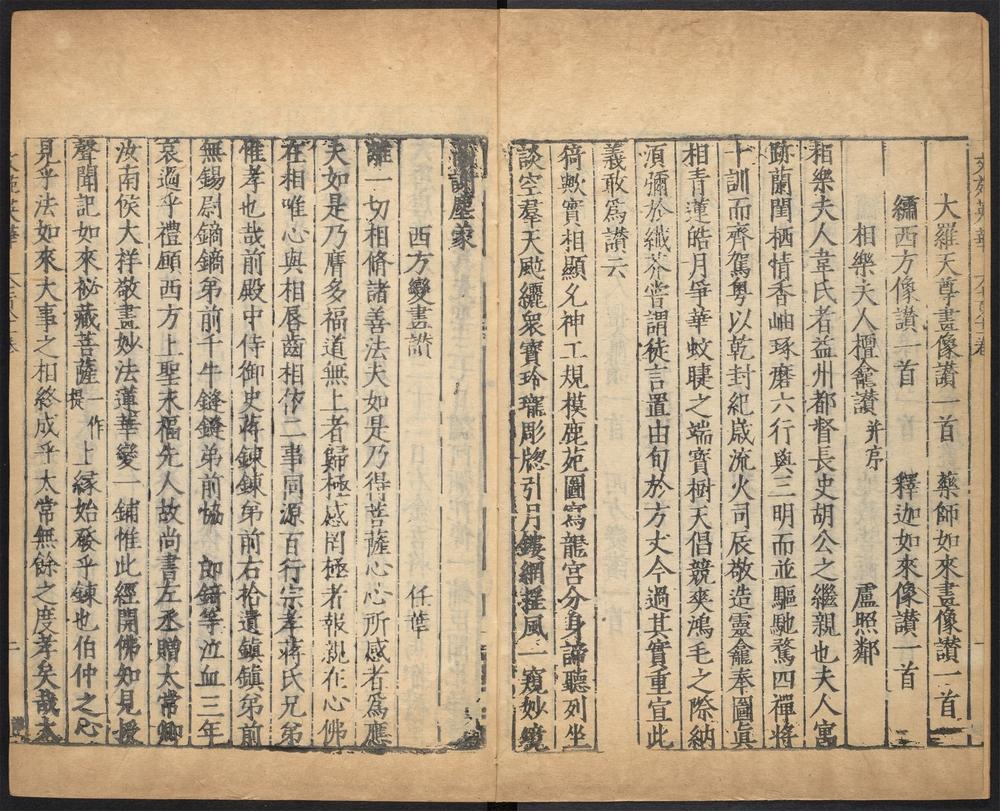 大羅天尊畫像讚一首 藥師如來畫像讚一首
繡西方像讚一首 釋迦如來像讚一首
相樂夫人檀龕讚并序 盧照鄰
相樂夫人韋氏者益州都督長史胡公之繼親也夫人寓
跡蘭閨栖情香岫琢磨六行與三明而並驅馳騖四禪將
十訓而齊駕粤以乾封紀歲流火司辰敬造靈龕奉圖眞
相青蓮皓月爭華蚊睫之端寶樹天倡競爽鴻毛之際納
須彌於纖芥嘗謂徒言置由旬於方丈今過其實重宣此
義敢爲讚云
猗歟實相顯允神工規模鹿苑圖寫龍宮分身諦聽列坐
談空羣天颭纚衆寶玲瓏彫牕引月鏤網揺風一窺妙鏡
塵蒙
西方變畫讚 任華
離一切相脩諸善法夫如是乃得菩薩心心所感者爲應
夫如是乃膺多福道無上者歸極感罔極者報親在心佛
在相唯心與相唇齒相依二事同源百行宗孝蔣氏兄弟
惟孝也哉前殿中侍御史蔣錬錬弟前右拾遺鎮鎮弟前
無錫尉鏑鏑弟前千牛鏠鏠弟前協 郎錡等泣血三年
哀過乎禮願西方上聖末福先人故尚書左丞贈太常卿
汝南侯大祥敬畫妙法蓮華變一鋪惟此經開佛知見授
聲聞記如來祕藏菩薩一作提上緣始發乎錬也伯仲之心
見乎法如來大事之相終成乎大常無餘之度孝矣哉太